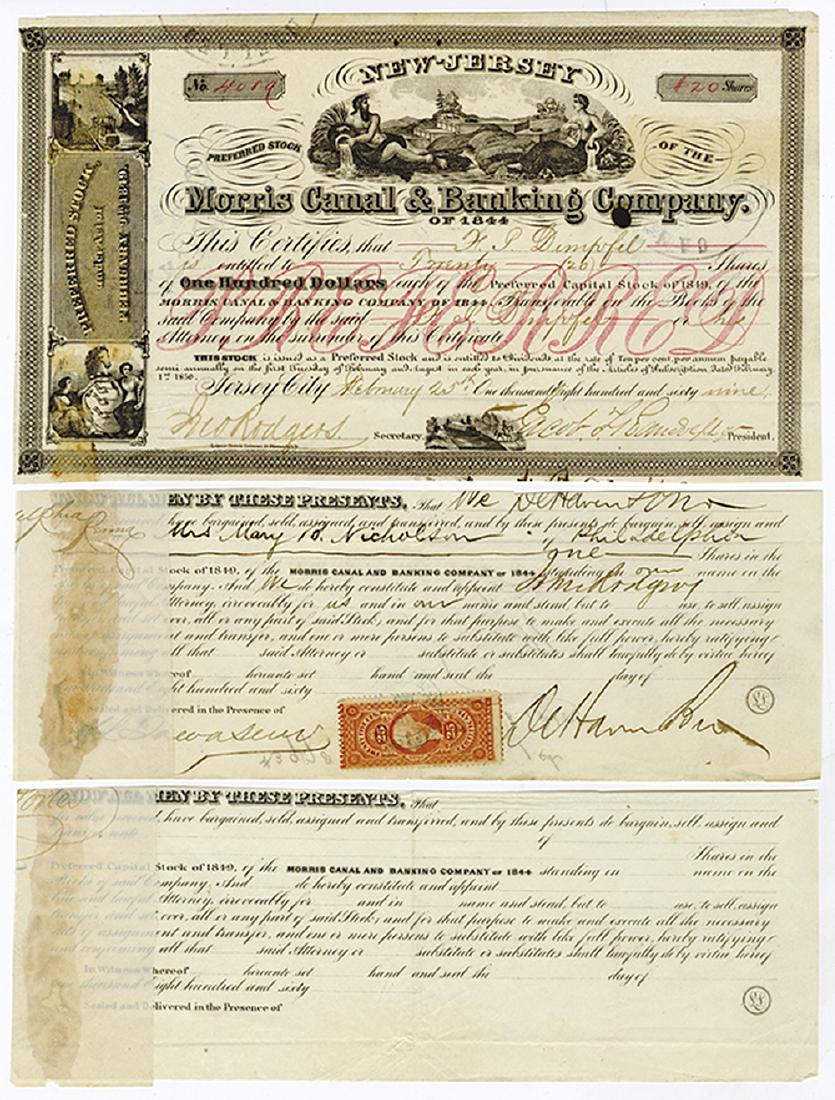 NEW-JERSEY
No. 4019
$20 Shares
PREFERRED STOCK
OF THE
Morris Canal & Banking Company.
OF 1844
PREFERRED STOCK,
under Act of
FEBRUARY 9TH 1849.
This Certifies, that
is entitled to Twenty (20) Shares
of One Hundred Dollars each of the Preferred Capital Stock of 1849, of the
MORRIS CANAL & BANKING COMPANY OF 1844, Transferable on the Books of the
said Company by the said or
Attorney on the surrender of this Certificate
PREFERRED
THIS STOCK is issued as a Preferred Stock and is entitled to Dividends at the rate of Ten per cent, per annum payable
semi annually on the first Tuesday of February and August in each year, in pursuance of the Articles of Subscription dated February
1st 1850.
Jersey City February 25th One thousand Eight hundred and sixty nine,
Rodgers Secretary. President.
MEN BY THESE PRESENTS, That We DeHaven
Penna have bargained, sold, assigned and transferred, and by these presents do bargain, sell, assign and
Mrs Mary Nicholson of Philadelphia
one Shares in the
Preferred Capital Stock of 1849, of the MORRIS CANAL AND BANKING COMPANY OF 1844 standing in our name on the
Books of said Company. And We do hereby constitute and appoint
true and lawful Attorney, irrevocably for us and in our name and stead, but to use, to sell, assign
transfer and set over, all or any part of said Stock; and for that purpose to make and execute all the necessary
acts of assignment and transfer, and one or more persons to substitute with like full power, hereby ratifying
and confirming all that said Attorney or substitute or substitutes shall lawfully do by virtue hereof
In Witness Whereof hereunto set hand and seal the day of
One thousand Eight hundred and sixty
Sealed and Delivered in the Presence of
25 25
DeHaven
LS
MEN BY THESE PRESENTS, That
for value received, have bargained, sold, assigned and transferred, and by these presents do bargain, sell, assign and
transferred unto of
Shares in the
Preferred Capital Stock of 1849, of the MORRIS CANAL AND BANKING COMPANY OF 1844 standing in name on the
Books of said Company. And do hereby constitute and appoint
true and lawful Attorney, irrevocably for and in name and stead, but to use, to sell, assign
transfer and set over, all or any part of said Stock; and for that purpose to make and execute all the necessary
acts of assignment and transfer, and one or more persons to substitute with like full power, hereby ratifying
and confirming all that said Attorney or substitute or substitutes shall lawfully do by virtue hereof
In Witness Whereof hereunto set hand and seal the day of
One thousand Eight hundred and sixty
Sealed and Delivered in the Presence of
LS